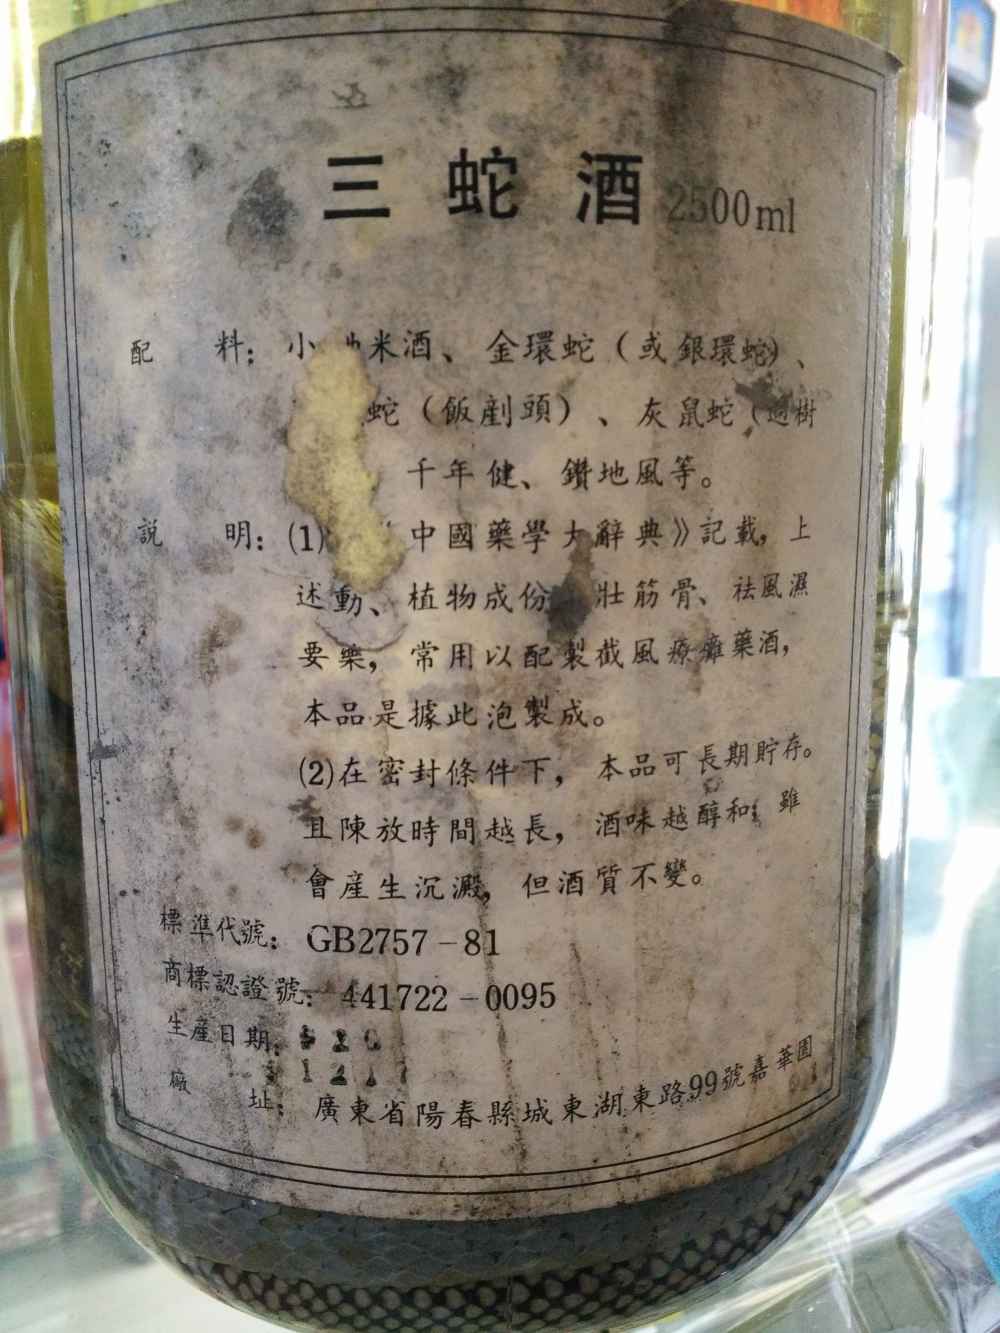 三蛇酒 2500ml
配 料：小 米酒、金環蛇（或銀環蛇）、
蛇（飯剷頭）、灰鼠蛇（過樹
千年健、鑽地風等。
説 明：(1) 中國藥學大辭典》記載，上
述動、植物成份 壯筋骨、祛風濕
要藥，常用以配製截風療癱藥酒，
本品是據此泡製成。
(2)在密封條件下，本品可長期貯存。
且陳放時間越長，酒味越醇和；雖
會産生沉澱，但酒質不變。
標準代號：GB2757-81
商標認證號：441722-0095
生産日期：
廠 址：廣東省陽春縣城東湖東路99號嘉華園